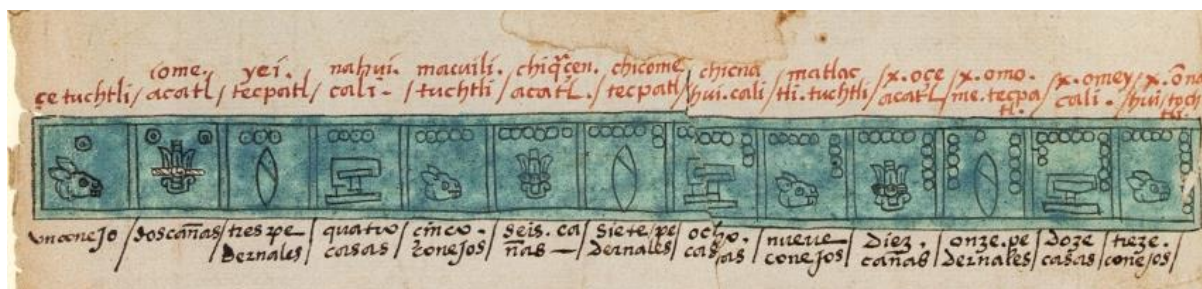 çe tuchtli / ome. acatl / yei. tecpatl / nahui. cali - / macuili. tuchtli / chiq̃cen. acatl. / chicome tecpatl / chicna hui. cali / matlac tli. tuchtli / x. oçe acatl / x. omo. me. tecpa tl. / x. omey cali. / x. õn hui / toch tli.
un conejo / dos cañas / tres pe dernales / quatro casas / cinco. conejos / seis. ca ñas — / siete / pe dernales / ocho. casas / nueve conejos / diez. cañas / onze. pe dernales / doze casas / treze. conejos /